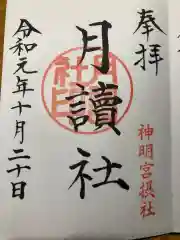 奉拝
月讀社
月讀社印
神明宮摂社
令和元年十月二十日